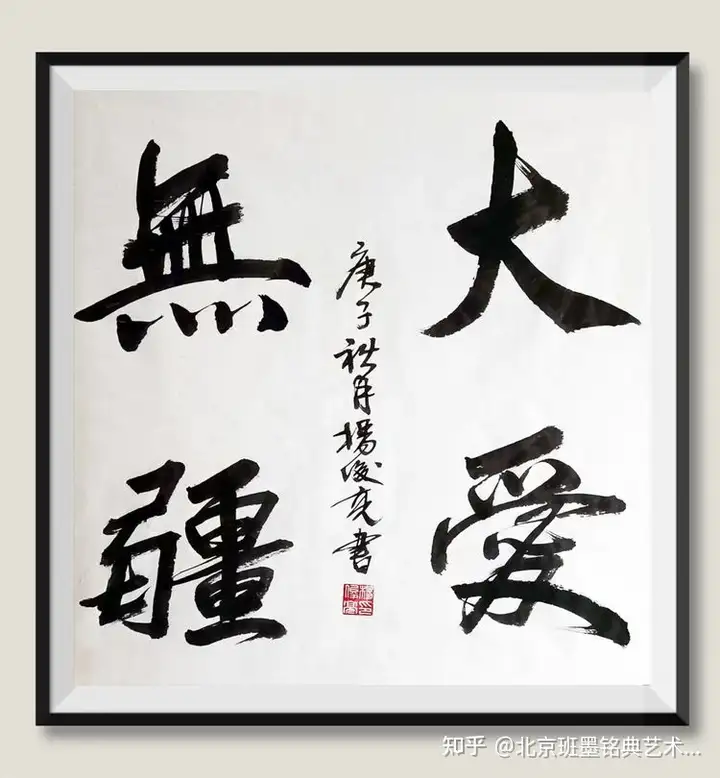 大愛
無疆
庚子秋月楊俊亮書
知乎 @北京班墨铭典艺术...